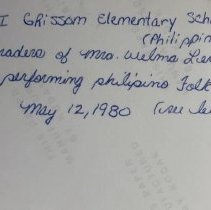 I Grissom Elementary Sch
(Philippin
raders of Mrs. Welma Lie
performing philipino Folk
May 12, 1980 (see le